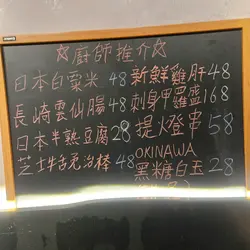 ☆廚師推介☆
日本白粟米 48
長崎雲仙腸 48
日本半熟豆腐 28
芝士牛舌免治棒 48
新鮮雞肝 48
刺身甲羅盛 168
提燈串 58
OKINAWA
黑糖白玉 28